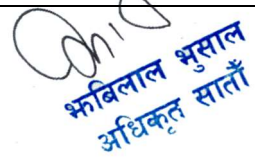 झबिलाल भुसाल
अधिकृत सातौँ